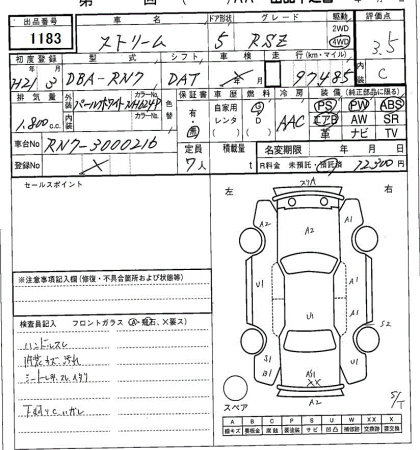 出品番号 車名 ドア形状 グレード 駆動 評価点
1183 ストリーム 5 RSZ 2WD 4WD 3.5
初度登録 型式 シフト 車検 走行(km・マイル) 内装
H21 3 DBA-RN7 DAT 年 月 97485 C
排気量 外装 カラーNo. 色替 保証書 車歴 燃料 冷房 装備(純正部品に限る)
1.800c.c. パールホワイト NH624P 有・無 自家用 レンタ G D AAC PS PW ABS
内装 カラーNo. エアB AW SR
革 ナビ TV
車台No RN7-3000216 定員 7人 積載量 t 名変期限 年 月 日
登録No R料金 未預託・預託済 12300円
セールスポイント
左 右
スリA
A2
A2 A1
A2 A1
U1 U1 A1
S2
S1
B1
A1
A2
※注意事項記入欄(修復・不具合箇所および状態等)
検査員記入 フロントガラス(A・飛石、X要ス)
ハンドルスレ
スペア
S/T
A B C P S U W X XX
線キズ 要板金 腐蝕 要塗装 サビ 凹凸 補修跡 交換跡 要交換